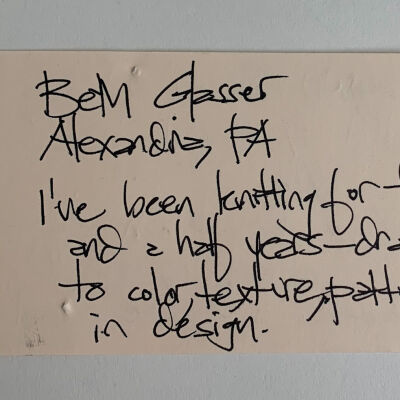 BeM Glasser
Alexandria, PA
I've been knitting for
and a half years—dra
to color, texture, patt
in design.